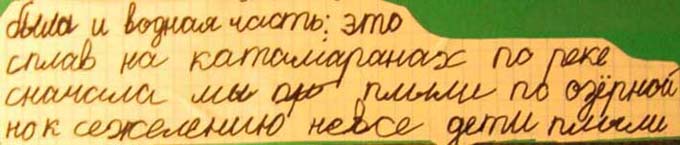 была и водная часть: это
сплав на катамаранах по реке
сначала мы плыли по озёрной
но к сежелению невсе дети плыли